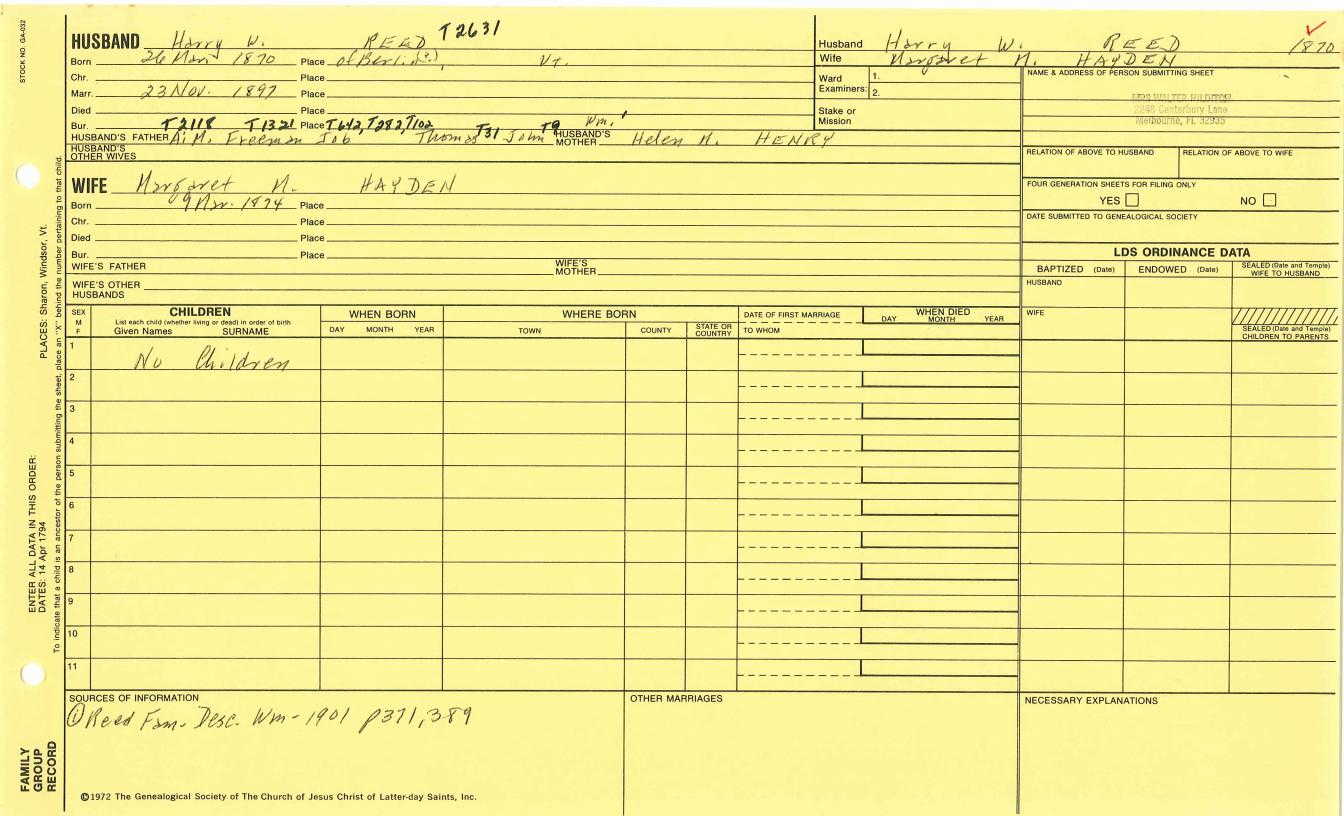 STOCK NO. GA-032
HUSBAND Harry W. REED T2631
Born 26 Mar 1870 Place of Berlin(?), Vt.
Chr. Place
Marr. 23 Nov. 1897 Place
Died Place
Bur. T2118 T1321 Place T642, T282, T102 T31 T9 Wm.'
HUSBAND'S FATHER A. M. Freeman Job Thomas John HUSBAND'S MOTHER Helen M. HENRY
HUSBAND'S OTHER WIVES
WIFE Margaret M. HAYDEN
Born 9 Mar. 1874 Place
Chr. Place
Died Place
Bur. Place
WIFE'S FATHER WIFE'S MOTHER
WIFE'S OTHER HUSBANDS
Husband Harry W. REED 1870
Wife Margaret M. HAYDEN
Ward Examiners: 1. 2.
Stake or Mission
NAME & ADDRESS OF PERSON SUBMITTING SHEET
MRS WALTER
Canterbury Lane
Melbourne, FL 32935
RELATION OF ABOVE TO HUSBAND RELATION OF ABOVE TO WIFE
FOUR GENERATION SHEETS FOR FILING ONLY
YES NO
DATE SUBMITTED TO GENEALOGICAL SOCIETY
LDS ORDINANCE DATA
BAPTIZED (Date) ENDOWED (Date) SEALED (Date and Temple) WIFE TO HUSBAND
HUSBAND
WIFE
SEALED (Date and Temple) CHILDREN TO PARENTS
SEX M F
CHILDREN
List each child (whether living or dead) in order of birth
Given Names SURNAME
WHEN BORN
DAY MONTH YEAR
WHERE BORN
TOWN COUNTY STATE OR COUNTRY
DATE OF FIRST MARRIAGE
TO WHOM
WHEN DIED
DAY MONTH YEAR
1 No Children
2
3
4
5
6
7
8
9
10
11
SOURCES OF INFORMATION
① Reed Fam. Desc. Wm - 1901 p371,389
OTHER MARRIAGES
NECESSARY EXPLANATIONS
©1972 The Genealogical Society of The Church of Jesus Christ of Latter-day Saints, Inc.
FAMILY GROUP RECORD
ENTER ALL DATA IN THIS ORDER:
DATES: 14 Apr 1794 PLACES: Sharon, Windsor, Vt.
To indicate that a child is an ancestor of the person submitting the sheet, place an "X" behind the number pertaining to that child.